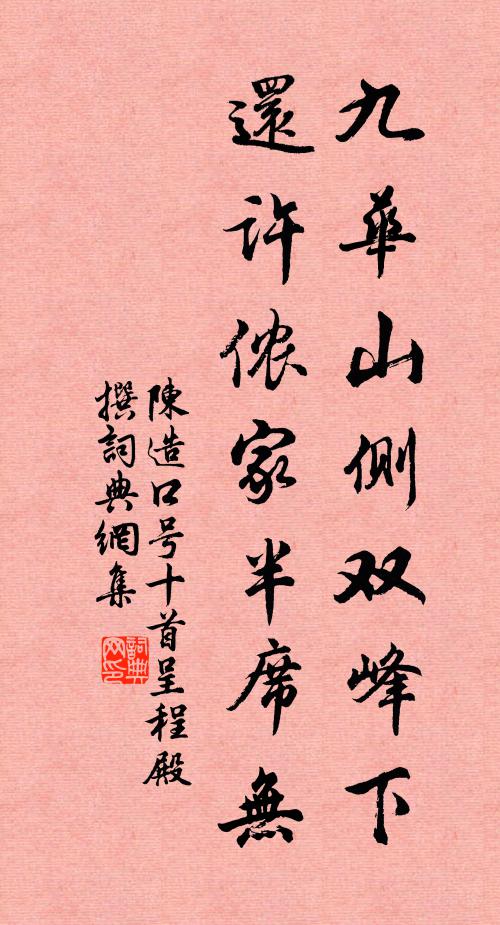 九華山側双峰下
還許侬家半席無
陳造口号十首呈程殿
撰詞典網集
詞典网印